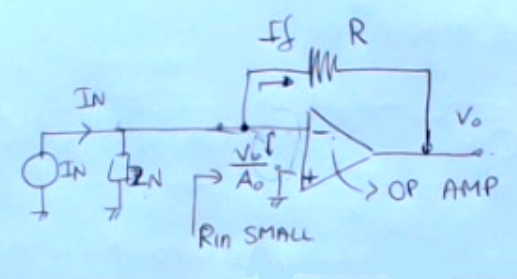 If R
IN
Vo
IN ZN
Vo
Ao
- +
OP AMP
Rin SMALL